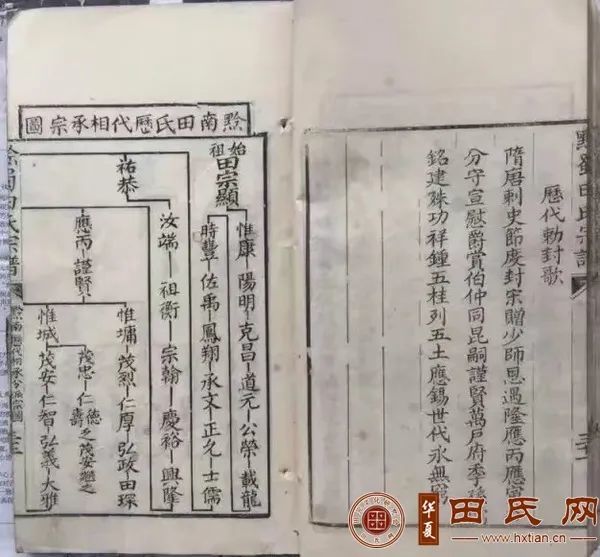 歷代勅封歌
隋唐刺史節度封宋贈少師恩遇隆應丙應
分守宣慰爵賞伯仲同昆嗣謹賢萬戶府季孫
銘建殊功祥鍾五桂列五土應錫世代永無窮
黔南田氏歷代相承宗圖
始祖
田宗顯
惟康 陽明 克昌 道元 公榮 載龍
時豐 佐禹 鳳翔 承文 正允 士儒
汝端 祖衡 宗翰 慶裕 興隆
祐恭
應丙 謹賢
惟墉 茂烈 仁厚 弘政 田琛
茂忠 仁壽 茂安繼之
惟城 茂安 仁智 弘義 大雅
田氏宗譜
华夏
田氏网
www.hxtian.com